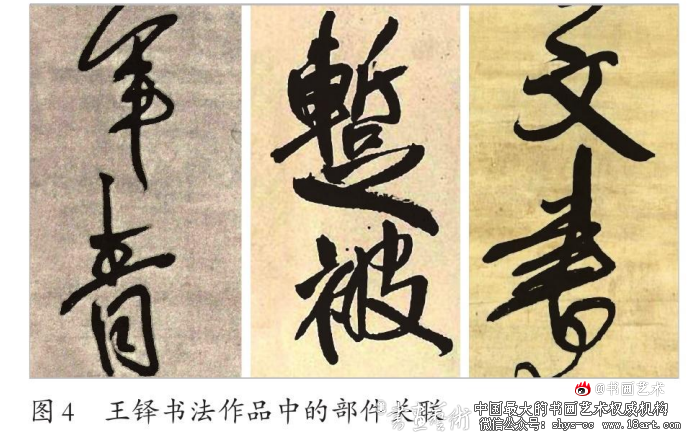 青
被
文
書
@书画艺术
图4 王铎书法作品中的部件关联
中国最大的书画艺术权威机构
微信公众号：shys-oc www.18art.com